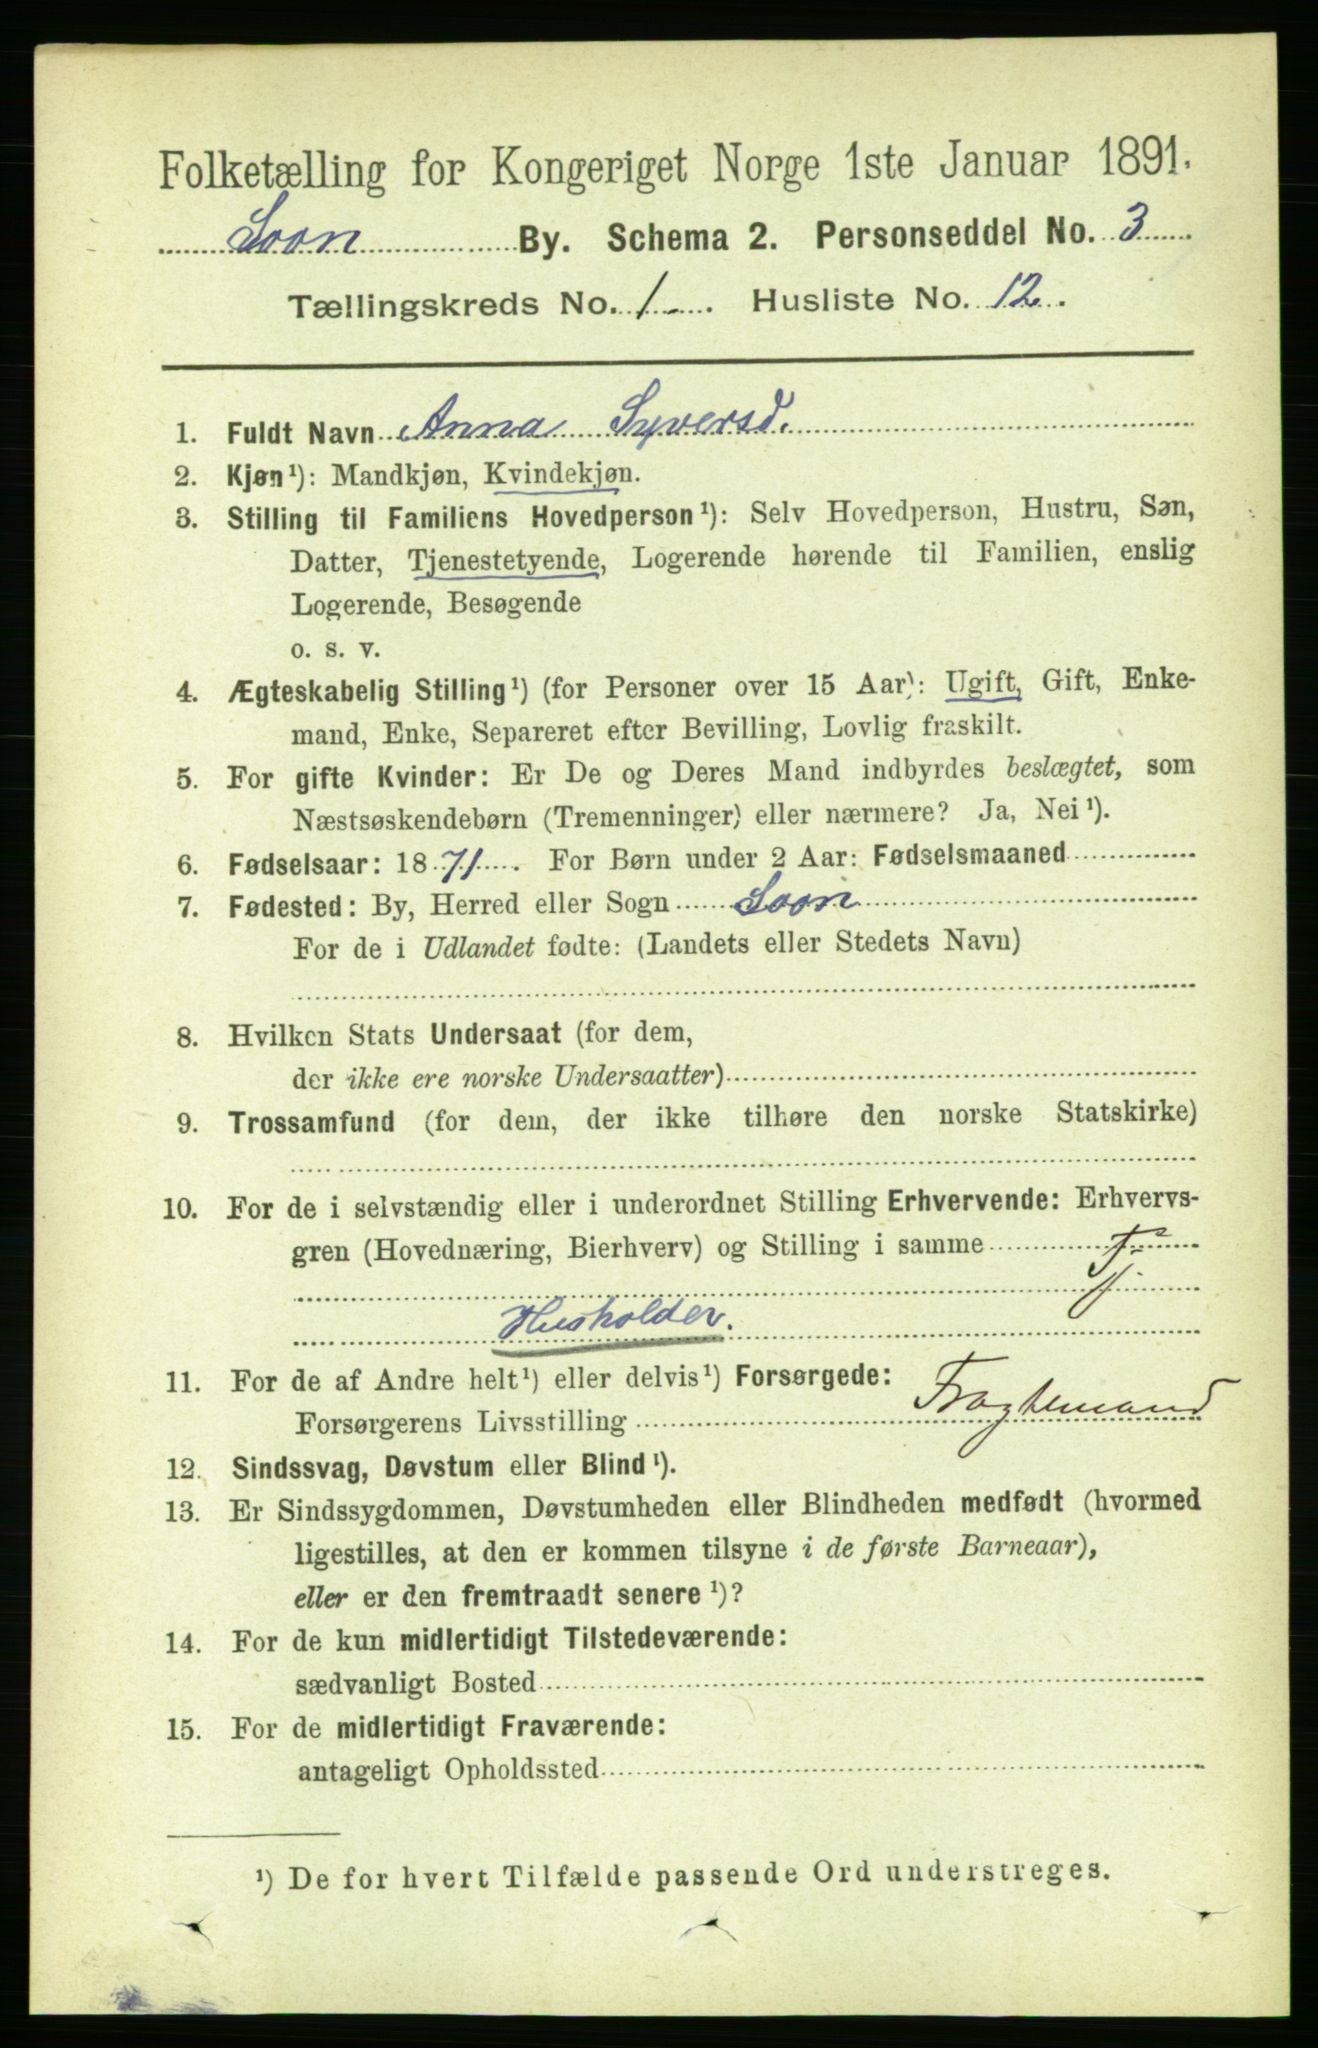 Folketælling for Kongeriget Norge 1ste Januar 1891.
Soon By. Schema 2. Personseddel No. 3
Tællingskreds No. 1. Husliste No. 12.
1. Fuldt Navn Anna Syversd.
2. Kjøn¹): Mandkjøn, Kvindekjøn.
3. Stilling til Familiens Hovedperson¹): Selv Hovedperson, Hustru, Søn,
Datter, Tjenestetyende, Logerende hørende til Familien, enslig
Logerende, Besøgende
o. s. v.
4. Ægteskabelig Stilling¹) (for Personer over 15 Aar): Ugift, Gift, Enke-
mand, Enke, Separeret efter Bevilling, Lovlig fraskilt.
5. For gifte Kvinder: Er De og Deres Mand indbyrdes beslægtet, som
Næstsøskendebørn (Tremenninger) eller nærmere? Ja, Nei¹).
6. Fødselsaar: 1871. For Børn under 2 Aar: Fødselsmaaned
7. Fødested: By, Herred eller Sogn Soon
For de i Udlandet fødte: (Landets eller Stedets Navn)
8. Hvilken Stats Undersaat (for dem,
der ikke ere norske Undersaatter)
9. Trossamfund (for dem, der ikke tilhøre den norske Statskirke)
10. For de i selvstændig eller i underordnet Stilling Erhvervende: Erhvervs-
gren (Hovednæring, Bierhverv) og Stilling i samme
Husholder.
11. For de af Andre helt¹) eller delvis¹) Forsørgede:
Forsørgerens Livsstilling Fragtemand
12. Sindssvag, Døvstum eller Blind¹).
13. Er Sindssygdommen, Døvstumheden eller Blindheden medfødt (hvormed
ligestilles, at den er kommen tilsyne i de første Barneaar),
eller er den fremtraadt senere¹)?
14. For de kun midlertidigt Tilstedeværende:
sædvanligt Bosted
15. For de midlertidigt Fraværende:
antageligt Opholdssted
¹) De for hvert Tilfælde passende Ord understreges.